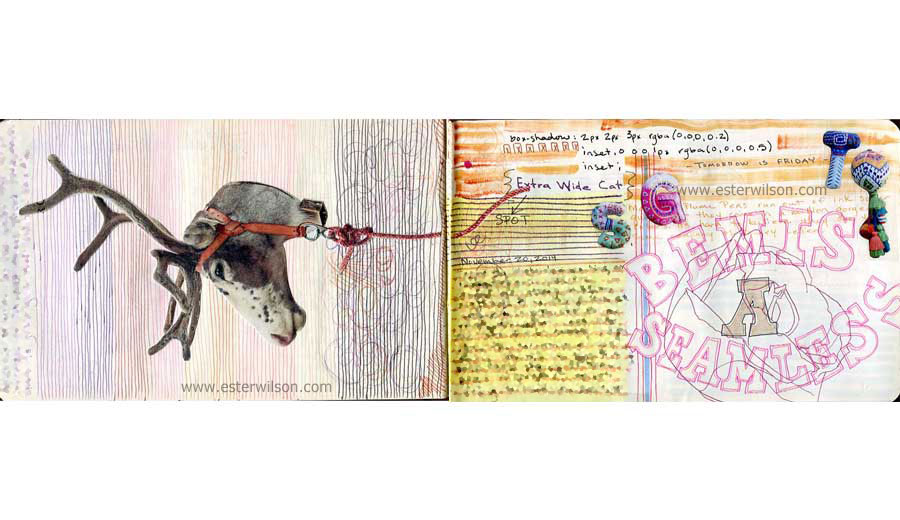 www.esterwilson.com
box-shadow: 2px 2px 3px rgba(0,0,0,0.2)
inset 0 0 0 1px rgba(0,0,0,0.5)
inset;
- TOMORROW IS FRIDAY
Extra Wide Cat
www.esterwilson.com
SPOT
S G
Plume Pens run out of ink so
November 20, 2014
BEMIS
A
SEAMLESS